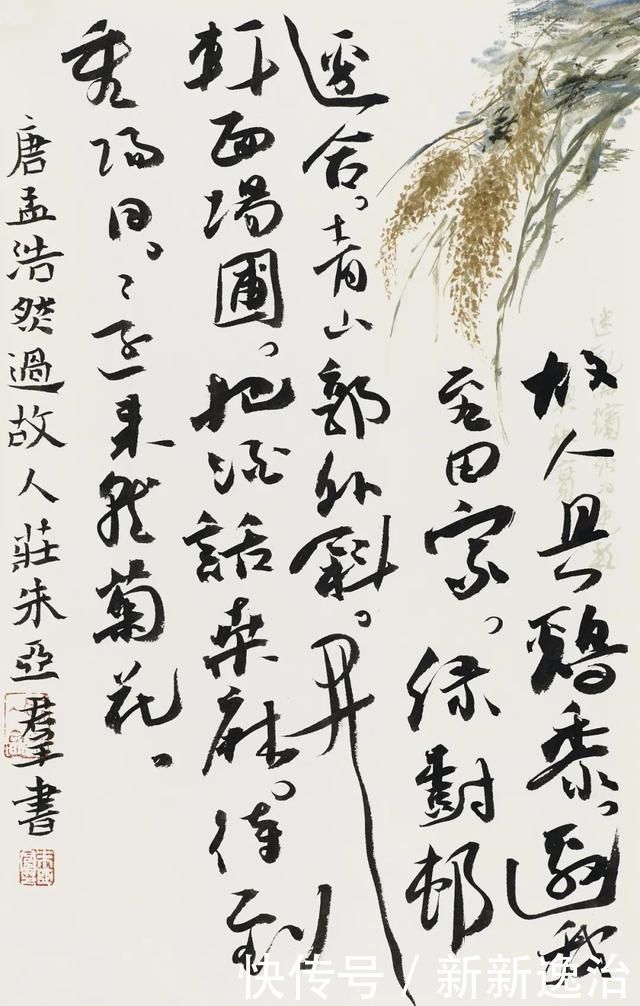 故人具鷄黍。邀我
至田家。綠樹邨
邊合。青山郭外斜。開
軒面場圃。把酒話桑麻。待到
重陽日。還来就菊花。
唐孟浩然過故人莊朱亞羣書
快传号 / 新新逸治